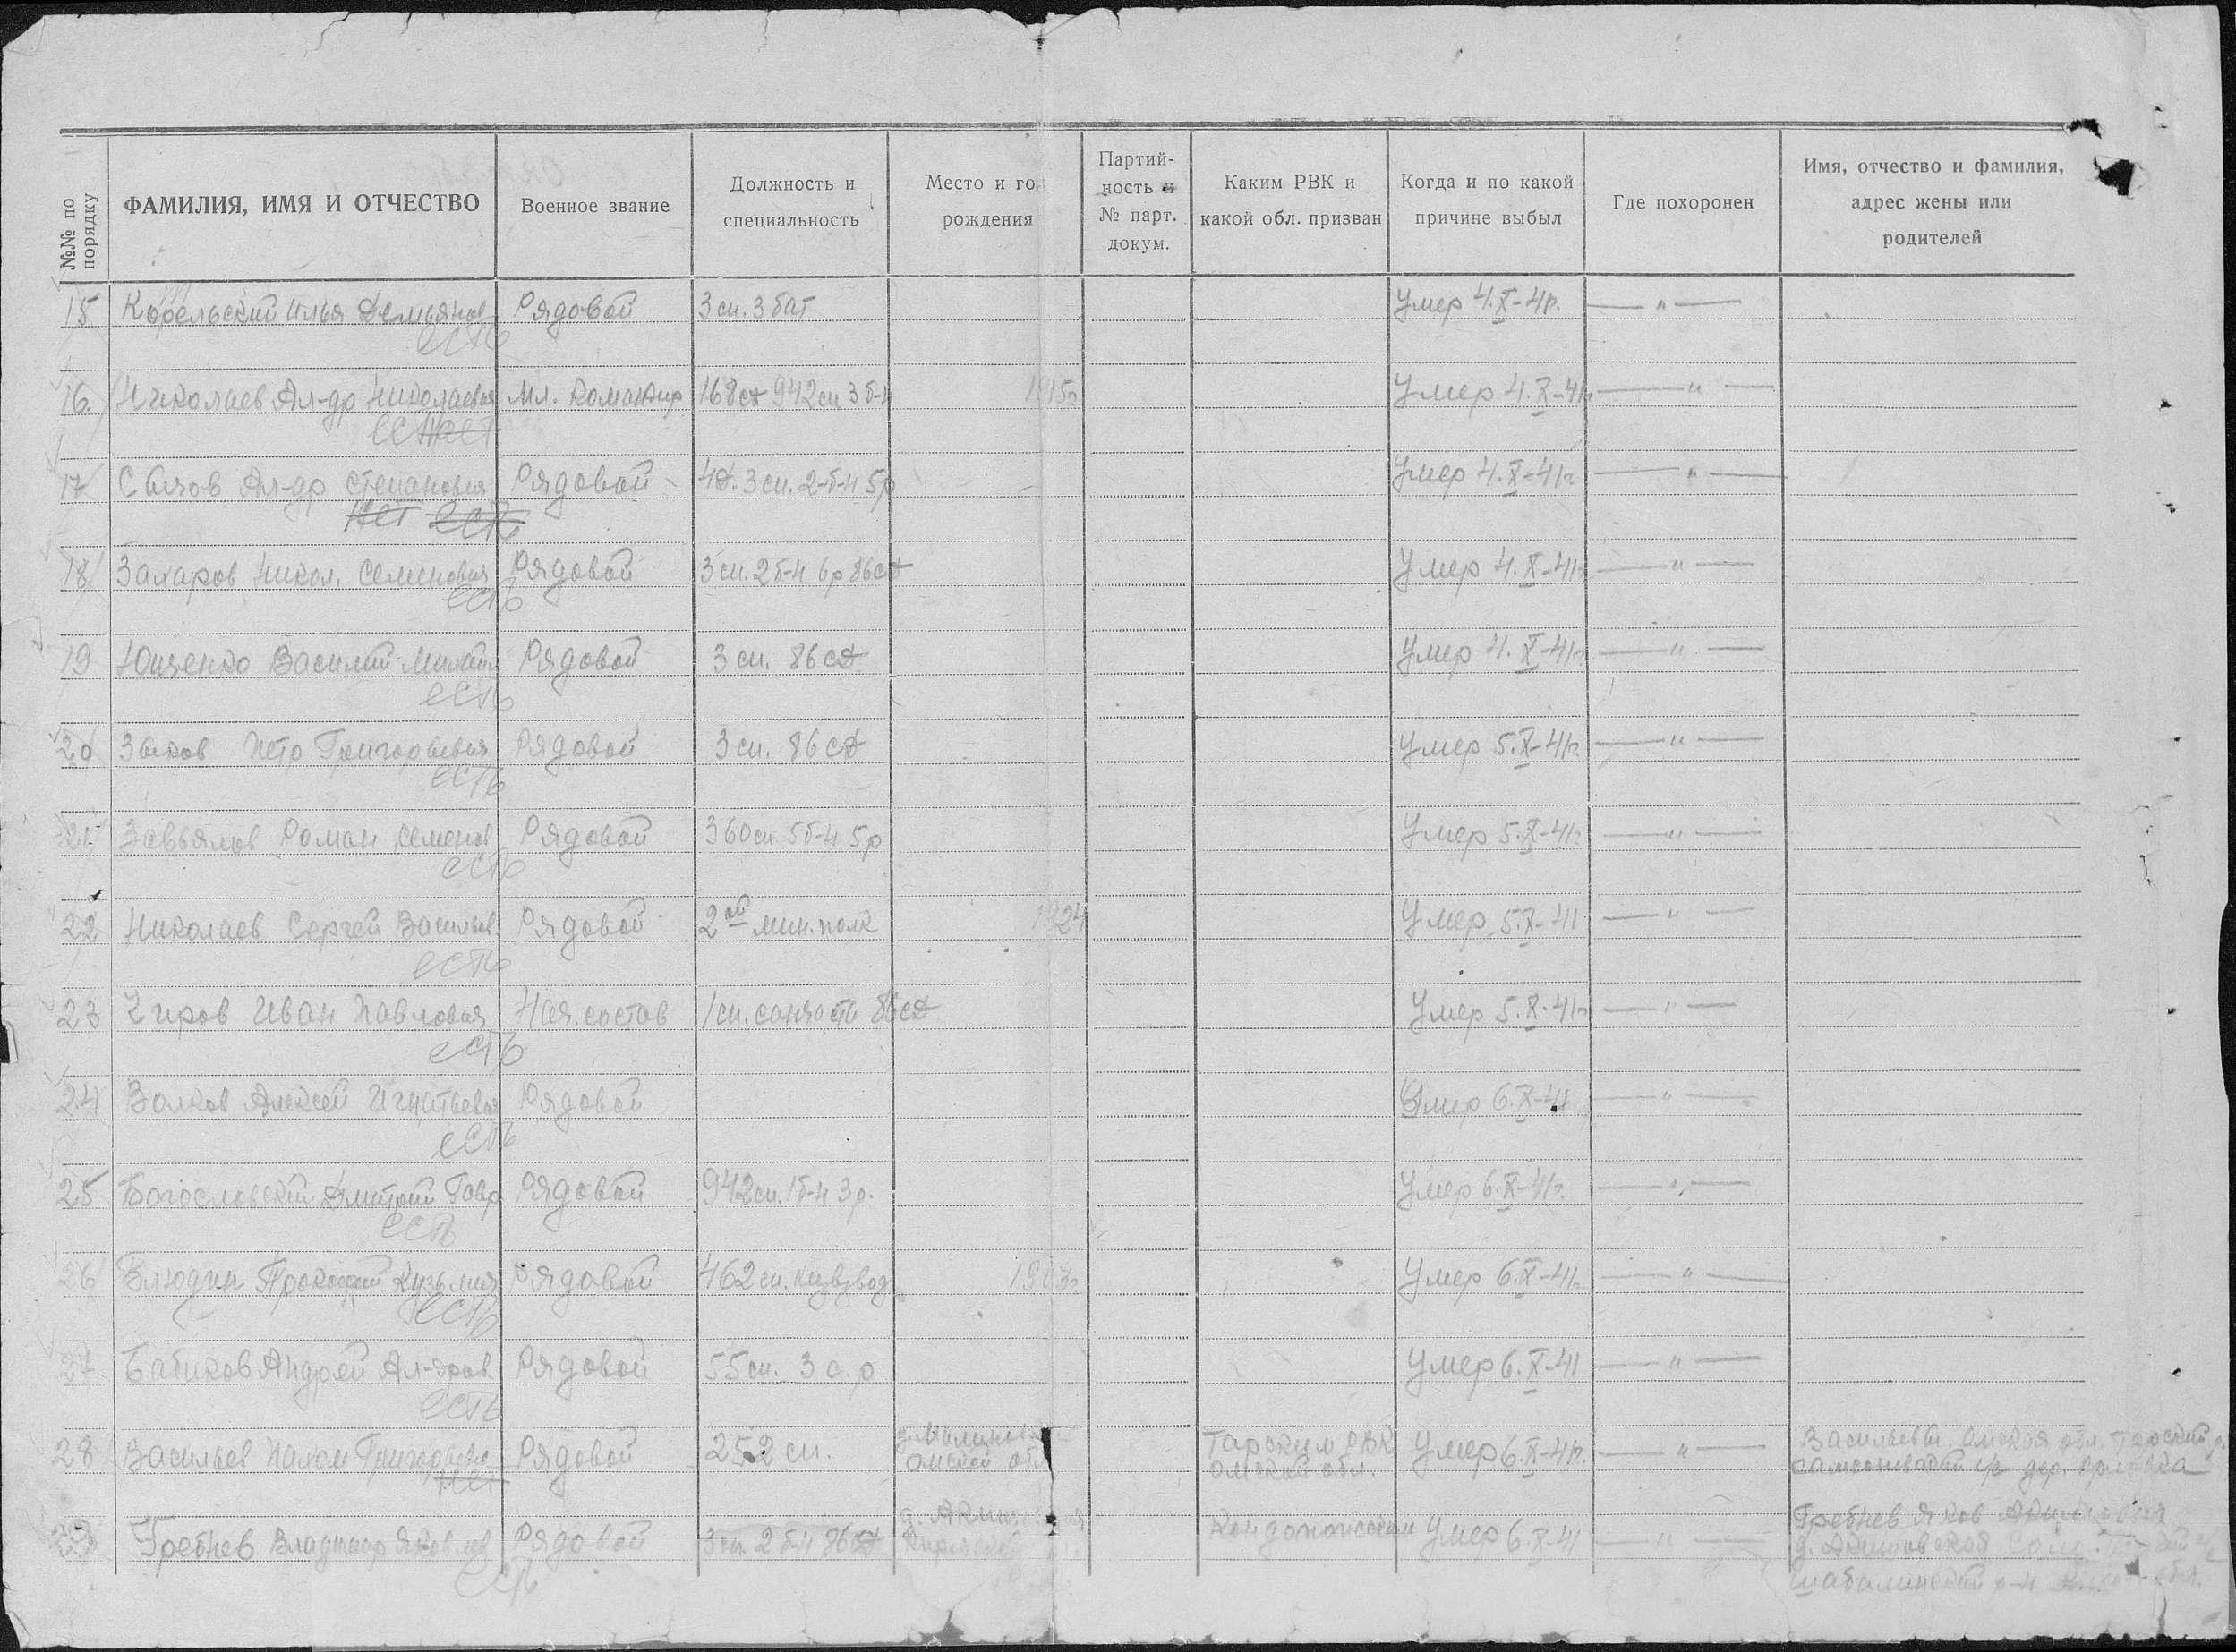 №№ по порядку
ФАМИЛИЯ, ИМЯ И ОТЧЕСТВО
Военное звание
Должность и
специальность
Место и го
рождения
Партий-
ность и
№ парт.
докум.
Каким РВК и
какой обл. призван
Когда и по какой
причине выбыл
Где похоронен
Имя, отчество и фамилия,
адрес жены или
родителей
15 Корельский Илья Демьянов Рядовой 3 сп. 3 бат Умер 4.X-41г. — " —
есть
16. Николаев Ал-др Николаевич Мл. командир 168сд 942 сп 3 б-н 1915г Умер 4.X-41г — " —
есть нет
17 Ал-др Степанович Рядовой 4д. 3 сп. 2-б-н 5р Умер 4.X-41г. — " —
нет есть
18 Захаров Никол. Семенович Рядовой 3 сп. 2 б-н 6р 86сд Умер 4.X-41г — " —
есть
19 Ющенко Василий Рядовой 3 сп. 86 сд Умер 4.X-41г — " —
есть
20 Зыков Петр Григорьевич Рядовой 3 сп. 86 сд Умер 5.X-41г. — " —
есть
21 Завьялов Роман Семенов Рядовой 360 сп. 5 б-н 5р Умер 5.X-41г. — " —
есть
22 Николаев Сергей Васильев Рядовой 2ой мин. полк 1924 Умер 5.X-41 — " —
есть
23 Чиров Иван Павлович Нач. состав 1 сп. 86сд Умер 5.X-41г — " —
есть
24 Волков Алексей Игнатьевич Рядовой Умер 6.X-41 — " —
есть
25 Богословский Дмитрий Гавр Рядовой 942 сп. 1 б-н 3 р. Умер 6.X-41г. — " —
есть
26 Блюдин Прокофий Кузьмич Рядовой 462 сп. взвод 1903г Умер 6.X-41г. — " —
есть
27 Бабиков Андрей Ал-дров Рядовой 55 сп. 3 с. р Умер 6.X-41 — " —
есть
28 Васильев Григорьевич Рядовой 252 сп. Омской обл Тарским РВК Омской обл. Умер 6.X-41г. — " — Васильева Омская обл. Тарский р.
нет с/с дер.
29 Гребнев Владимир Яковлев Рядовой 3 сп. 2 б-н 86сд д. Умер 6.X-41 — " — Гребнев Яков
есть д. Акимовская
Шабалинский р-н обл.